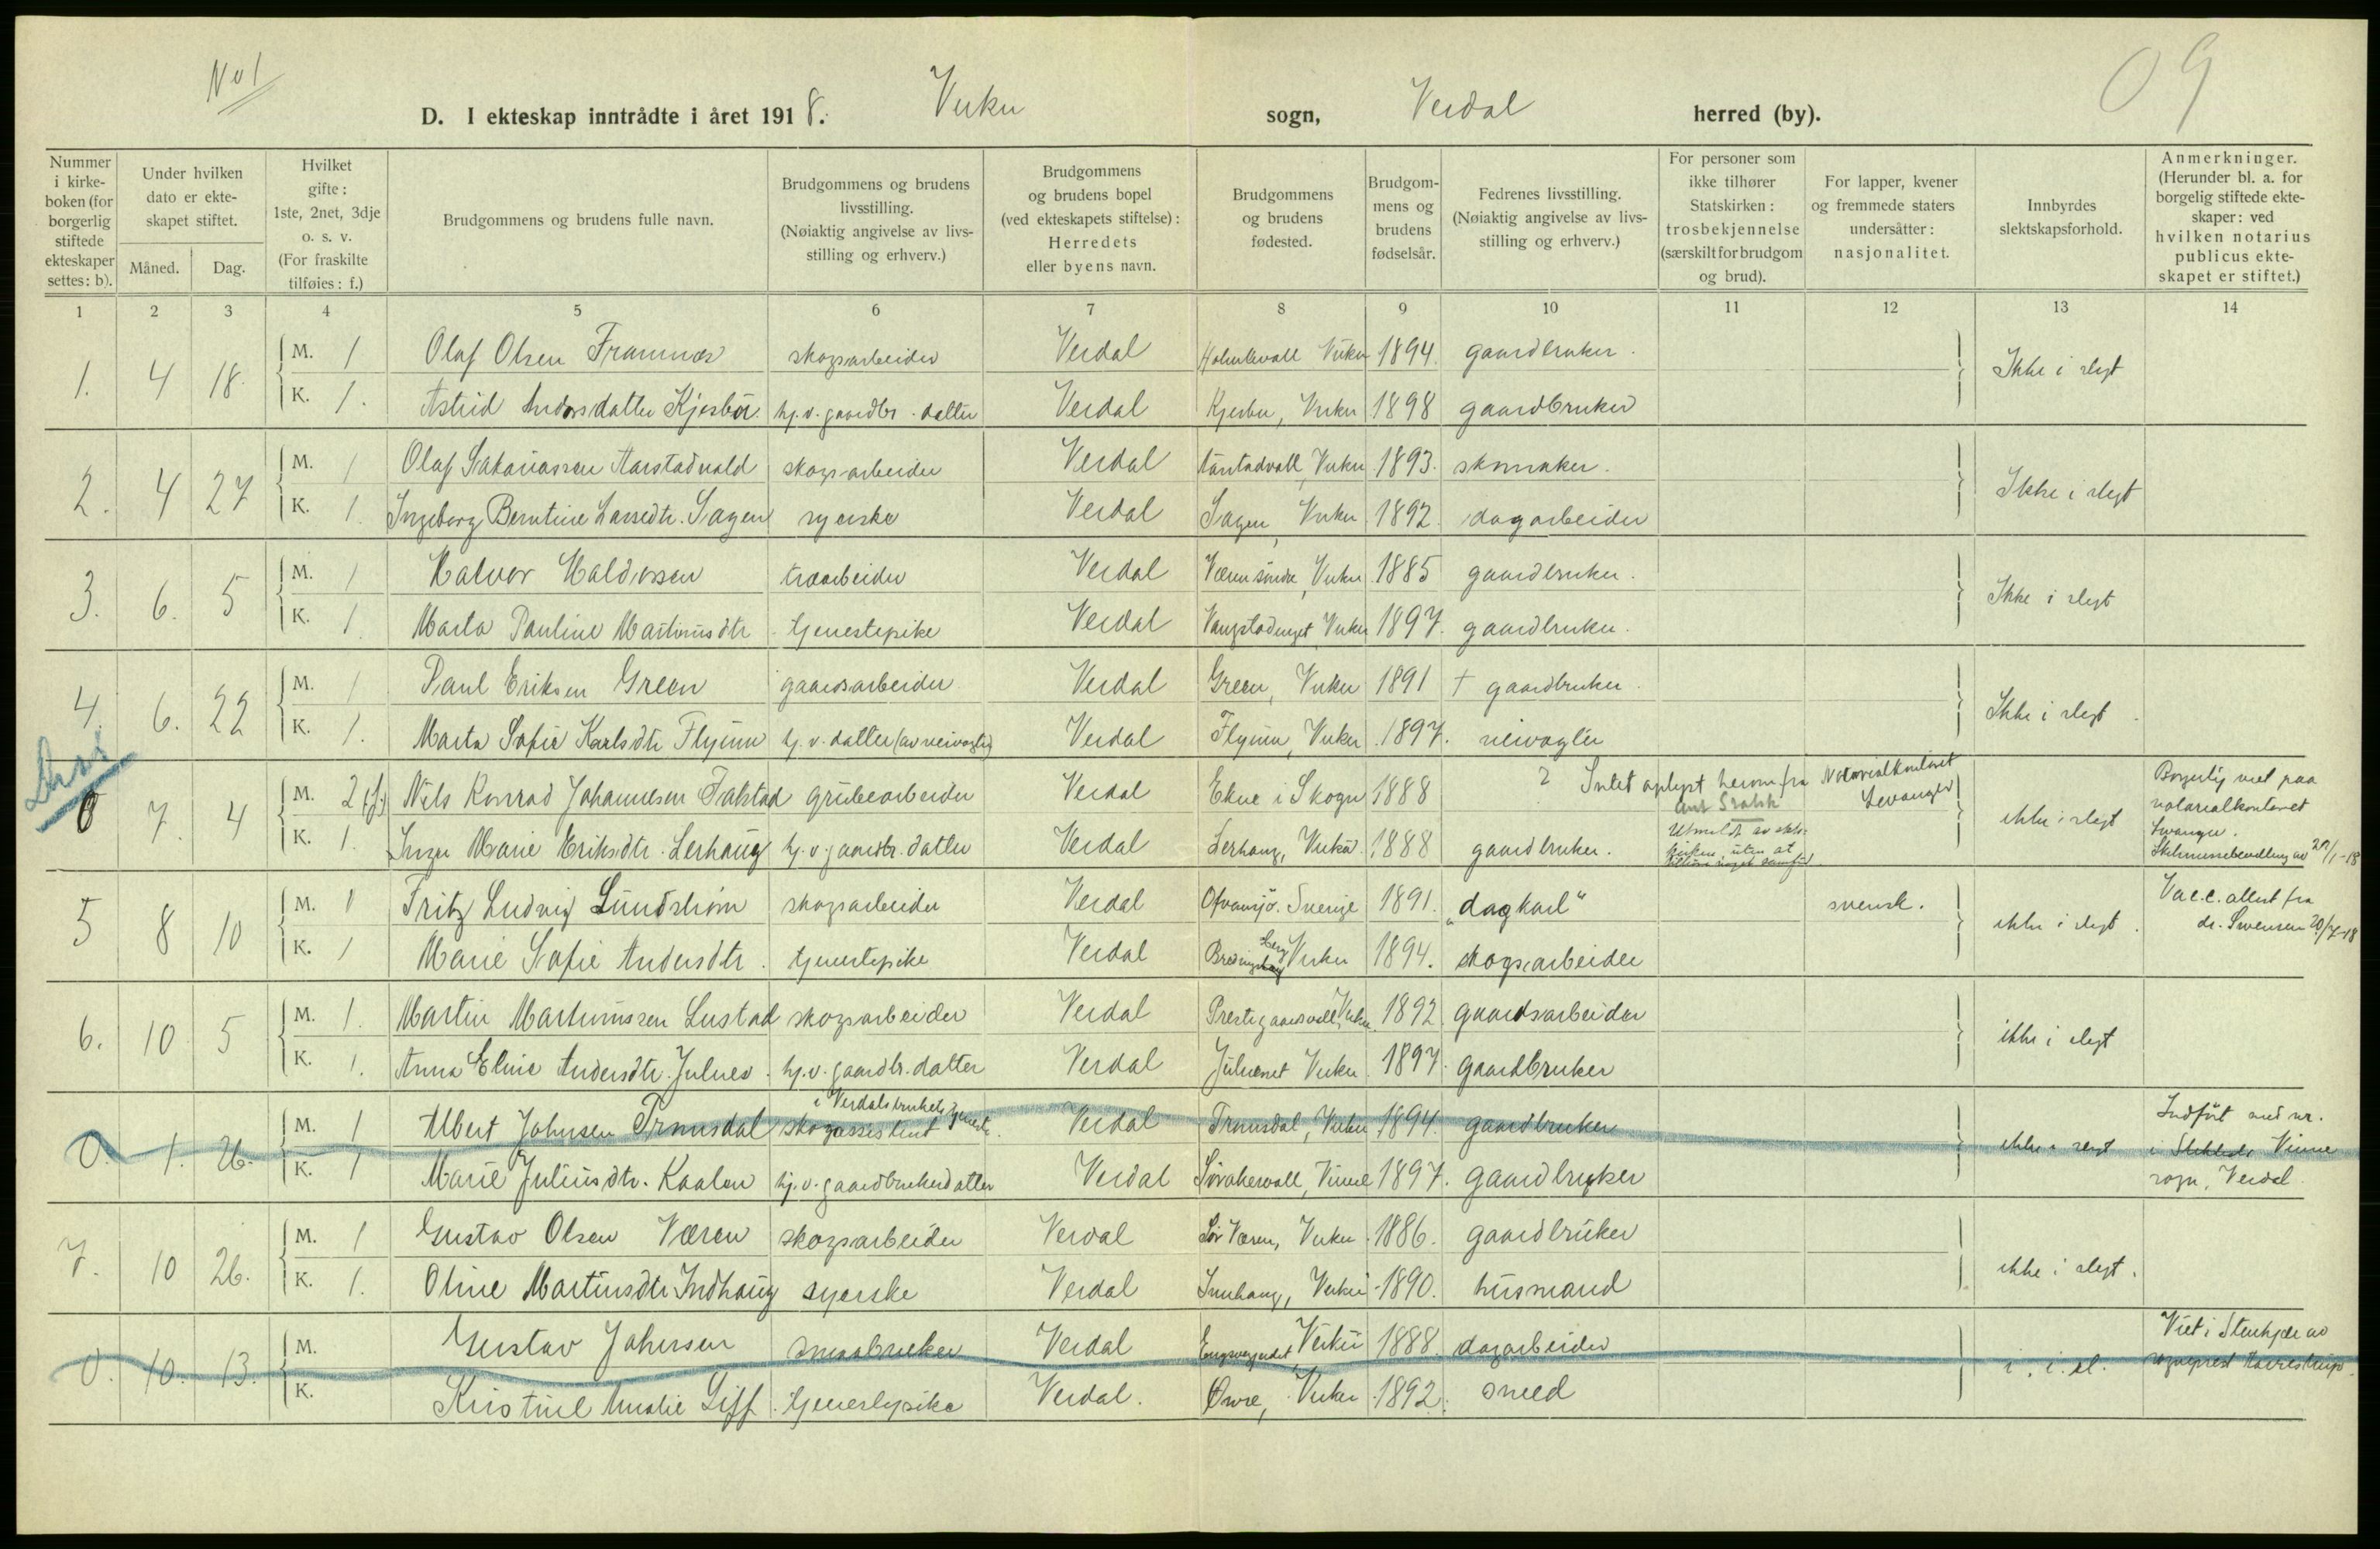 No 1
09
D. I ekteskap inntrådte i året 1918. Vuku sogn, Verdal herred (by).
Nummer i kirkeboken (for borgerlig stiftede ekteskaper settes: b).
Under hvilken dato er ekteskapet stiftet.
Måned. Dag.
Hvilket gifte: 1ste, 2net, 3dje o. s. v. (For fraskilte tilføies: f.)
Brudgommens og brudens fulle navn.
Brudgommens og brudens livsstilling. (Nøiaktig angivelse av livsstilling og erhverv.)
Brudgommens og brudens bopel (ved ekteskapets stiftelse): Herredets eller byens navn.
Brudgommens og brudens fødested.
Brudgommens og brudens fødselsår.
Fedrenes livsstilling. (Nøiaktig angivelse av livsstilling og erhverv.)
For personer som ikke tilhører Statskirken: trosbekjennelse (særskilt for brudgom og brud).
For lapper, kvener og fremmede staters undersåtter: nasjonalitet.
Innbyrdes slektskapsforhold.
Anmerkninger. (Herunder bl. a. for borgelig stiftede ekteskaper: ved hvilken notarius publicus ekteskapet er stiftet.)
1 2 3 4 5 6 7 8 9 10 11 12 13 14
1. 4 18. M. 1 Olaf Olsen Framnes skogsarbeider Verdal Vuku 1894. gaardbruker. Ikke i slegt
K. 1. Astrid Andersdatter Kjesbu hj. v. gaardbr. datter Verdal Kjesbu, Vuku 1898 gaardbruker
2. 4 27 M. 1 Olaf Sakariassen Aarstadvald skogsarbeider Verdal Aarstadvall, Vuku 1893. skomaker. Ikke i slegt
K. 1. Ingeborg Berntine Larsdtr. Sagen syerske Verdal Sagen, Vuku 1892. dagarbeider
3. 6. 5 M. 1 Halvor Haldorsen træarbeider Verdal Væren søndre, Vuku 1885 gaardbruker. Ikke i slegt
K. 1. Marta Pauline Martinusdtr tjenestepike Verdal Vangstadenget Vuku 1897. gaardbruker.
4. 6. 22 M. 1 Paul Eriksen Green gaardsarbeider Verdal Green, Vuku 1891 † gaardbruker. Ikke i slegt.
K. 1. Marta Sofie Karlsdtr Flyum hj. v. datter (av veivogter) Verdal Flyum, Vuku 1897. veivogter
0 7. 4 M. 2 (f.) Nils Konrad Johannesen Falstad grubearbeider Verdal Ekne i Skogn 1888 ? Intet oplyst herom fra Notarialkontoret Levanger ikke i slegt Borgerlig viet paa notarialkontoret Levanger.
K. 1. Inga Marie Eriksdtr. Lerhaug hj. v. gaardbr. datter Verdal Lerhaug, Vuku 1888 gaardbruker. Utmeldt av stats- kirken uten at Skilsmissebevilling av 29/1-18
5 8 10 M. 1 Fritz Ludvig Lundstrøm skogsarbeider Verdal Ofvansjö. Sverige 1891. "dagkarl" svensk. ikke i slegt. Vacc. attest fra
K. 1 Marie Sofie Andersdtr. tjenestepike Verdal Bredingsberg Vuku 1894. skogsarbeider dr. Svensen 20/7-18
6. 10 5 M. 1. Martin Martinussen Lustad skogsarbeider Verdal Prestegaardsvall, Vuku 1892 gaardsarbeider ikke i slegt
K. 1. Anna Eline Andersdtr. Julnes. hj. v. gaardbr. datter Verdal Julneset Vuku 1897. gaardbruker
0. 1. 26. M. 1 Albert Johnsen Tromsdal skogassistent i Verdalsbrukets tjeneste. Verdal Tromsdal, Vuku 1894. gaardbruker ikke i slegt Indført med nr.
K. 1 Marie Juliusdtr. Kaalen hj. v. gaardbrukerdatter Verdal Sørakervall, Vinne 1897. gaardbruker i Vinne sogn, Verdal
7. 10 26. M. 1 Gustav Olsen Væren skogsarbeider Verdal Sør Væren, Vuku 1886. gaardbruker ikke i slegt.
K. 1. Oline Martinsdtr. Indhaug syerske Verdal Innhaug, Vuku 1890. husmand
0. 10. 13. M. Gustav Johnsen smaabruker Verdal Vuku 1888. dagarbeider i. i. sl. Viet i Stenkjer av
K. Kristine Amalie Liff tjenestepike Verdal. Øvre, Vuku 1892. smed sogneprest